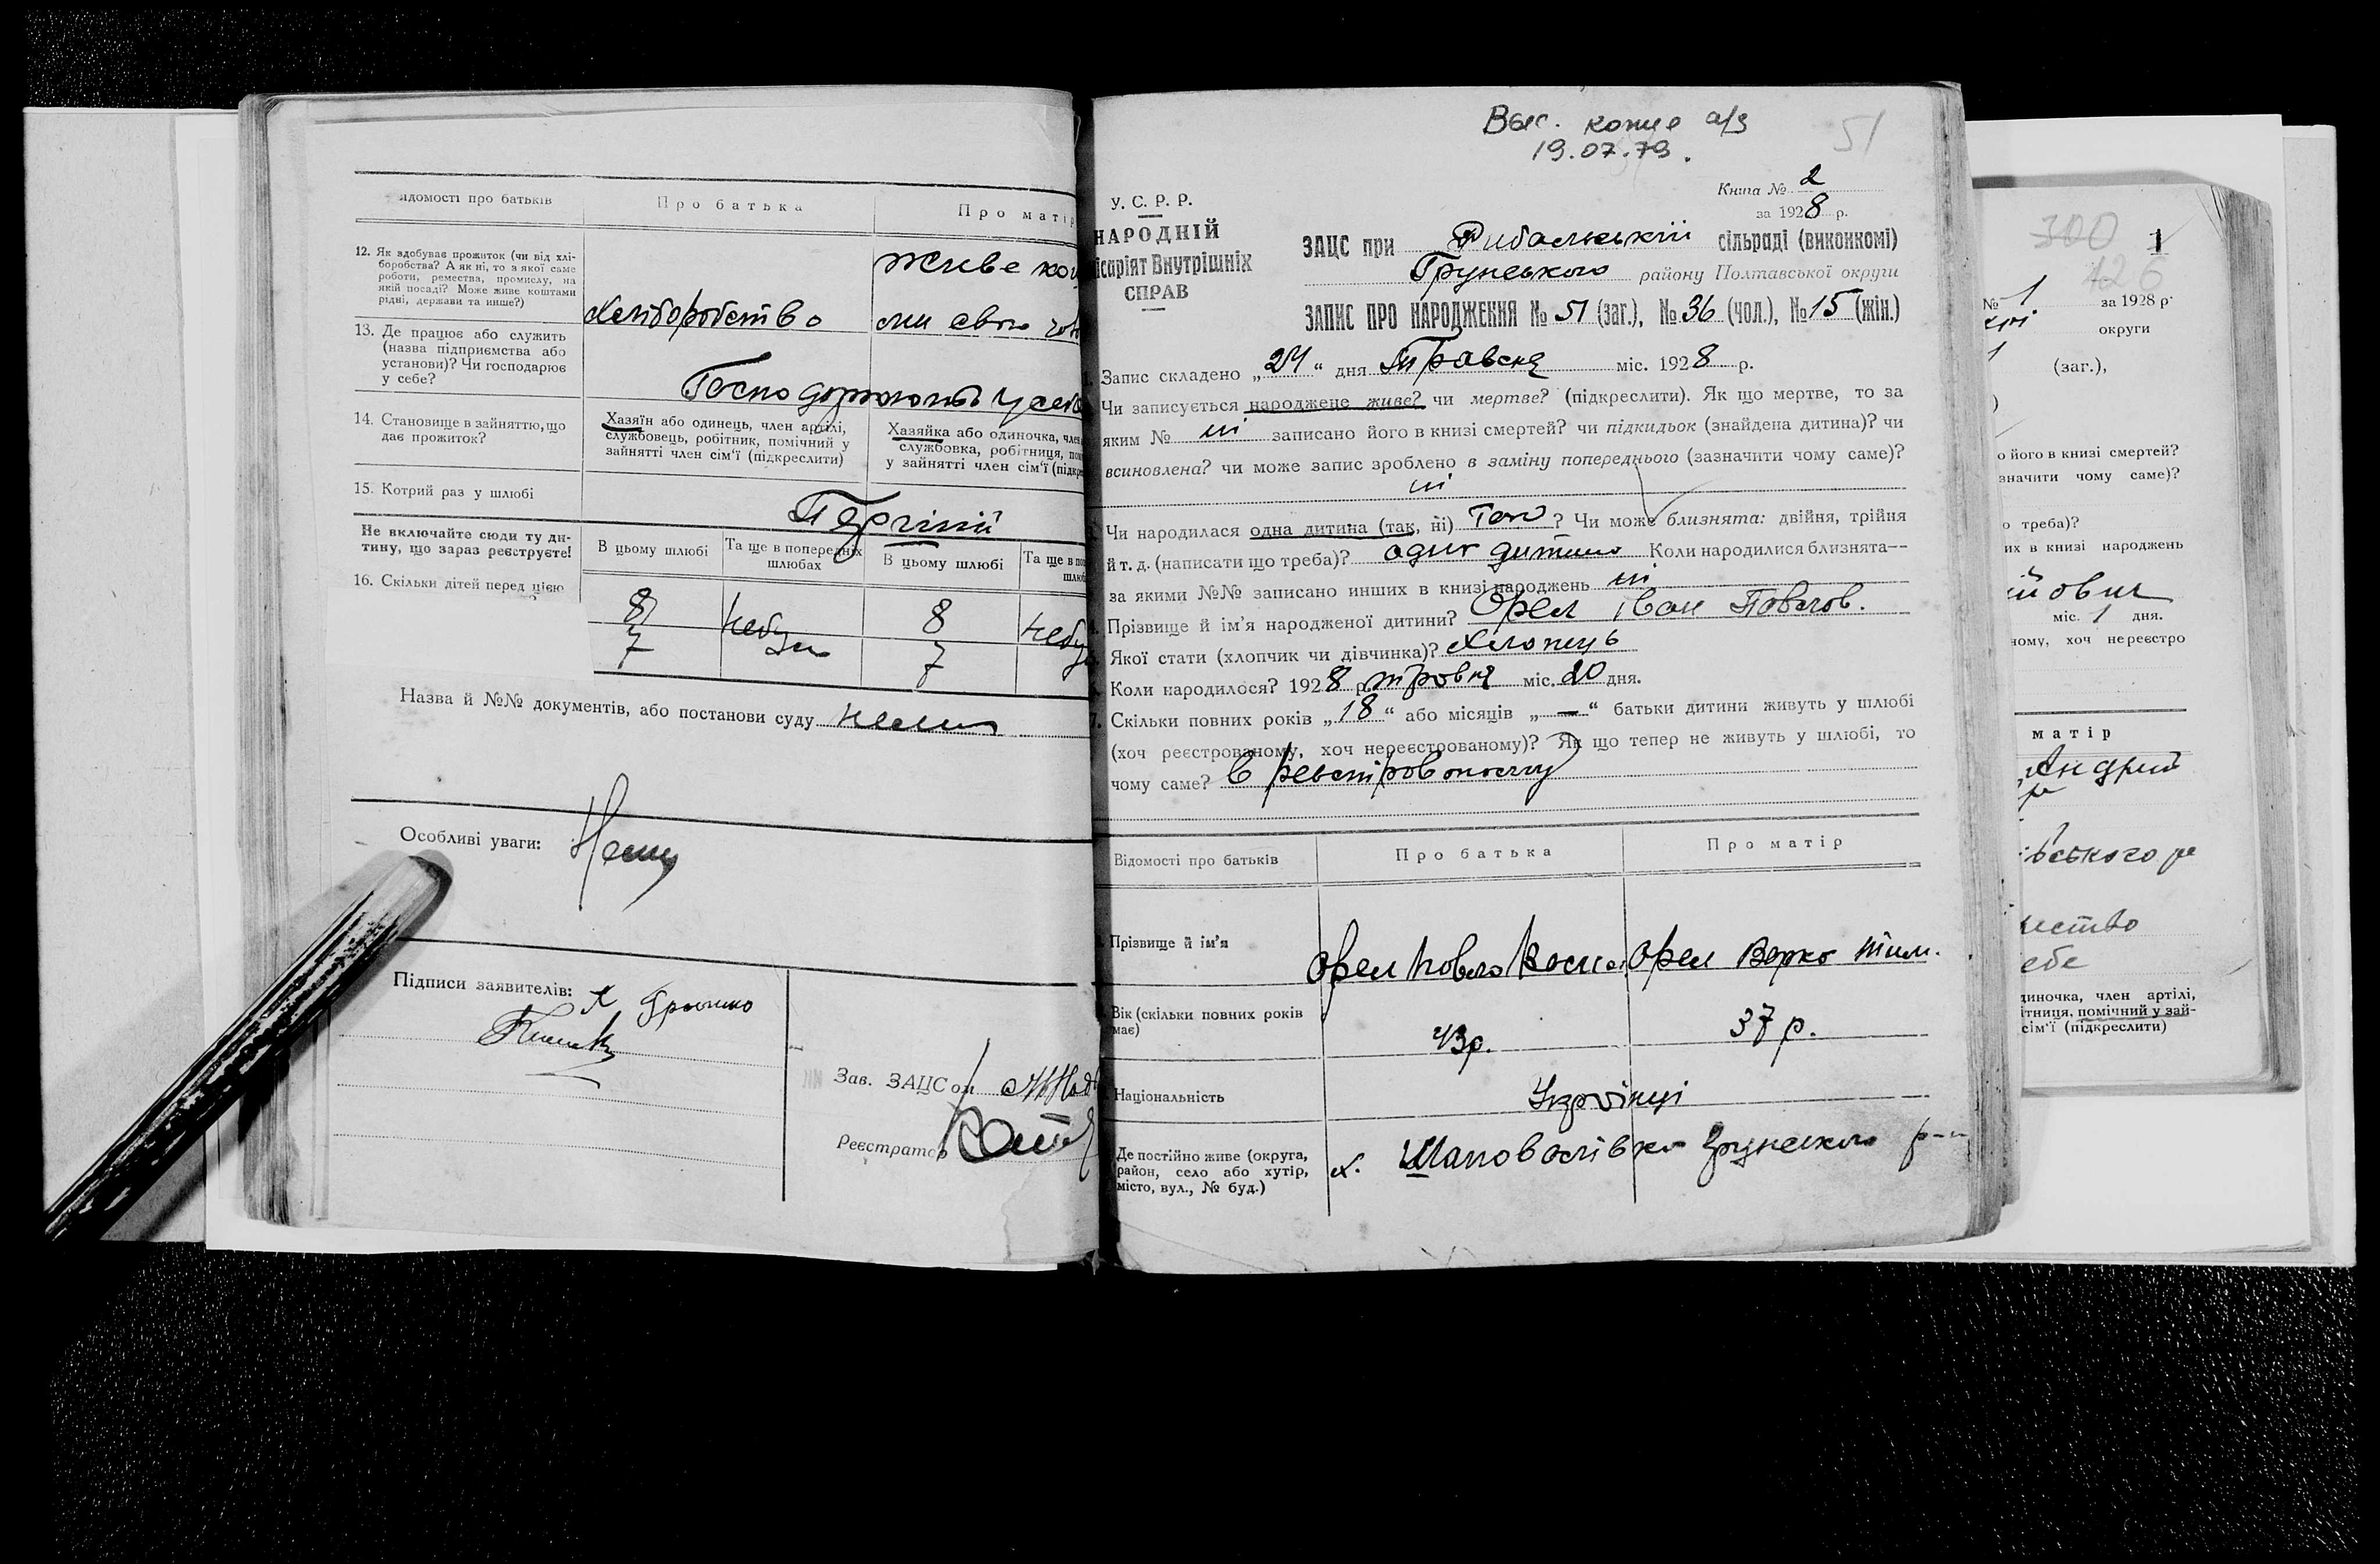 Відомості про батьків
Про батька
Про матір
12. Як здобуває прожиток (чи від хлі-
боробства? А як ні, то з якої саме
роботи, ремества, промислу, на
якій посаді? Може живе коштами
рідні, держави та инше?)
Хліборобство
живе кош
13. Де працює або служить
(назва підприємства або
установи)? Чи господарює
у себе?
14. Становище в зайняттю, що
дає прожиток?
Хазяїн або одинець, член артілі,
службовець, робітник, помічний у
зайнятті член сім'ї (підкреслити)
Хазяйка або одиночка, член
службовка, робітниця, пом
у зайнятті член сім'ї (підкре
15. Котрий раз у шлюбі
Не включайте сюди ту ди-
тину, що зараз реєструєте!
В цьому шлюбі
Та ще в попередніх
шлюбах
В цьому шлюбі
Та ще в по
шлюб
16. Скільки дітей перед цією
8 8
7 7
Назва й №№ документів, або постанови суду
Особливі уваги:
Підписи заявителів:
Зав. ЗАЦСом
Реєстратор
Выс. копие а/з
19.07.79.
51
Книга № 2
за 1928 р.
У. С. Р. Р.
НАРОДНІЙ
ісаріят Внутрішніх
СПРАВ
ЗАЦС при Рибальській сільраді (виконкомі)
Грунського району Полтавської округи
ЗАПИС ПРО НАРОДЖЕННЯ № 51 (заг.), № 36 (чол.), № 15 (жін.)
Запис складено „24“ дня Травня міс. 1928 р.
Чи записується народжене живе? чи мертве? (підкреслити). Як що мертве, то за
яким № ні записано його в книзі смертей? чи підкидьок (знайдена дитина)? чи
всиновлена? чи може запис зроблено в заміну попереднього (зазначити чому саме)?
ні
Чи народилася одна дитина (так, ні) Так? Чи може близнята: двійня, трійня
й т. д. (написати що треба)? одна дитина Коли народилися близнята—
за якими №№ записано инших в книзі народжень ні
Прізвище й ім'я народженої дитини? Орел Іван Павлов.
Якої стати (хлопчик чи дівчинка)? Хлопець
Коли народилося? 1928 р. травня міс. 20 дня.
7. Скільки повних років „18“ або місяців „—“ батьки дитини живуть у шлюбі
(хоч реєстрованому, хоч нереєстрованому)? Як що тепер не живуть у шлюбі, то
чому саме? в реєстрованому
Відомості про батьків
Про батька
Про матір
Прізвище й ім'я
Орел Павло
Орел Варка Тим.
Вік (скільки повних років
має)
43р.
37 р.
Національність
Українці
Де постійно живе (округа,
район, село або хутір,
місто, вул., № буд.)
х. Шаповалівка Грунського р-н
300
1
126
№ 1 за 1928 р.
округи
(заг.),
о його в книзі смертей?
значити чому саме)?
о треба)?
их в книзі народжень
міс. 1 дня.
ному, хоч нереєстро
матір
диночка, член артілі,
ітниця, помічний у зай-
сім'ї (підкреслити)